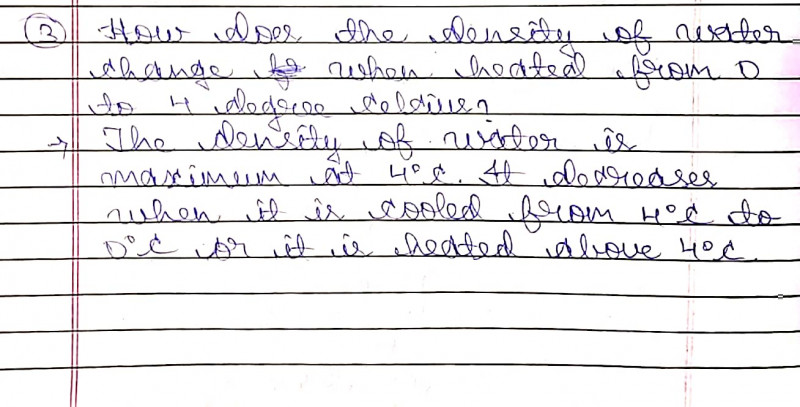 ③ How does the density of water
change when heated from 0
to 4 degree celcius?
→ The density of water is
maximum at 4°c. It decreases
when it is cooled from 4°c to
0°c or it is heated above 4°c.